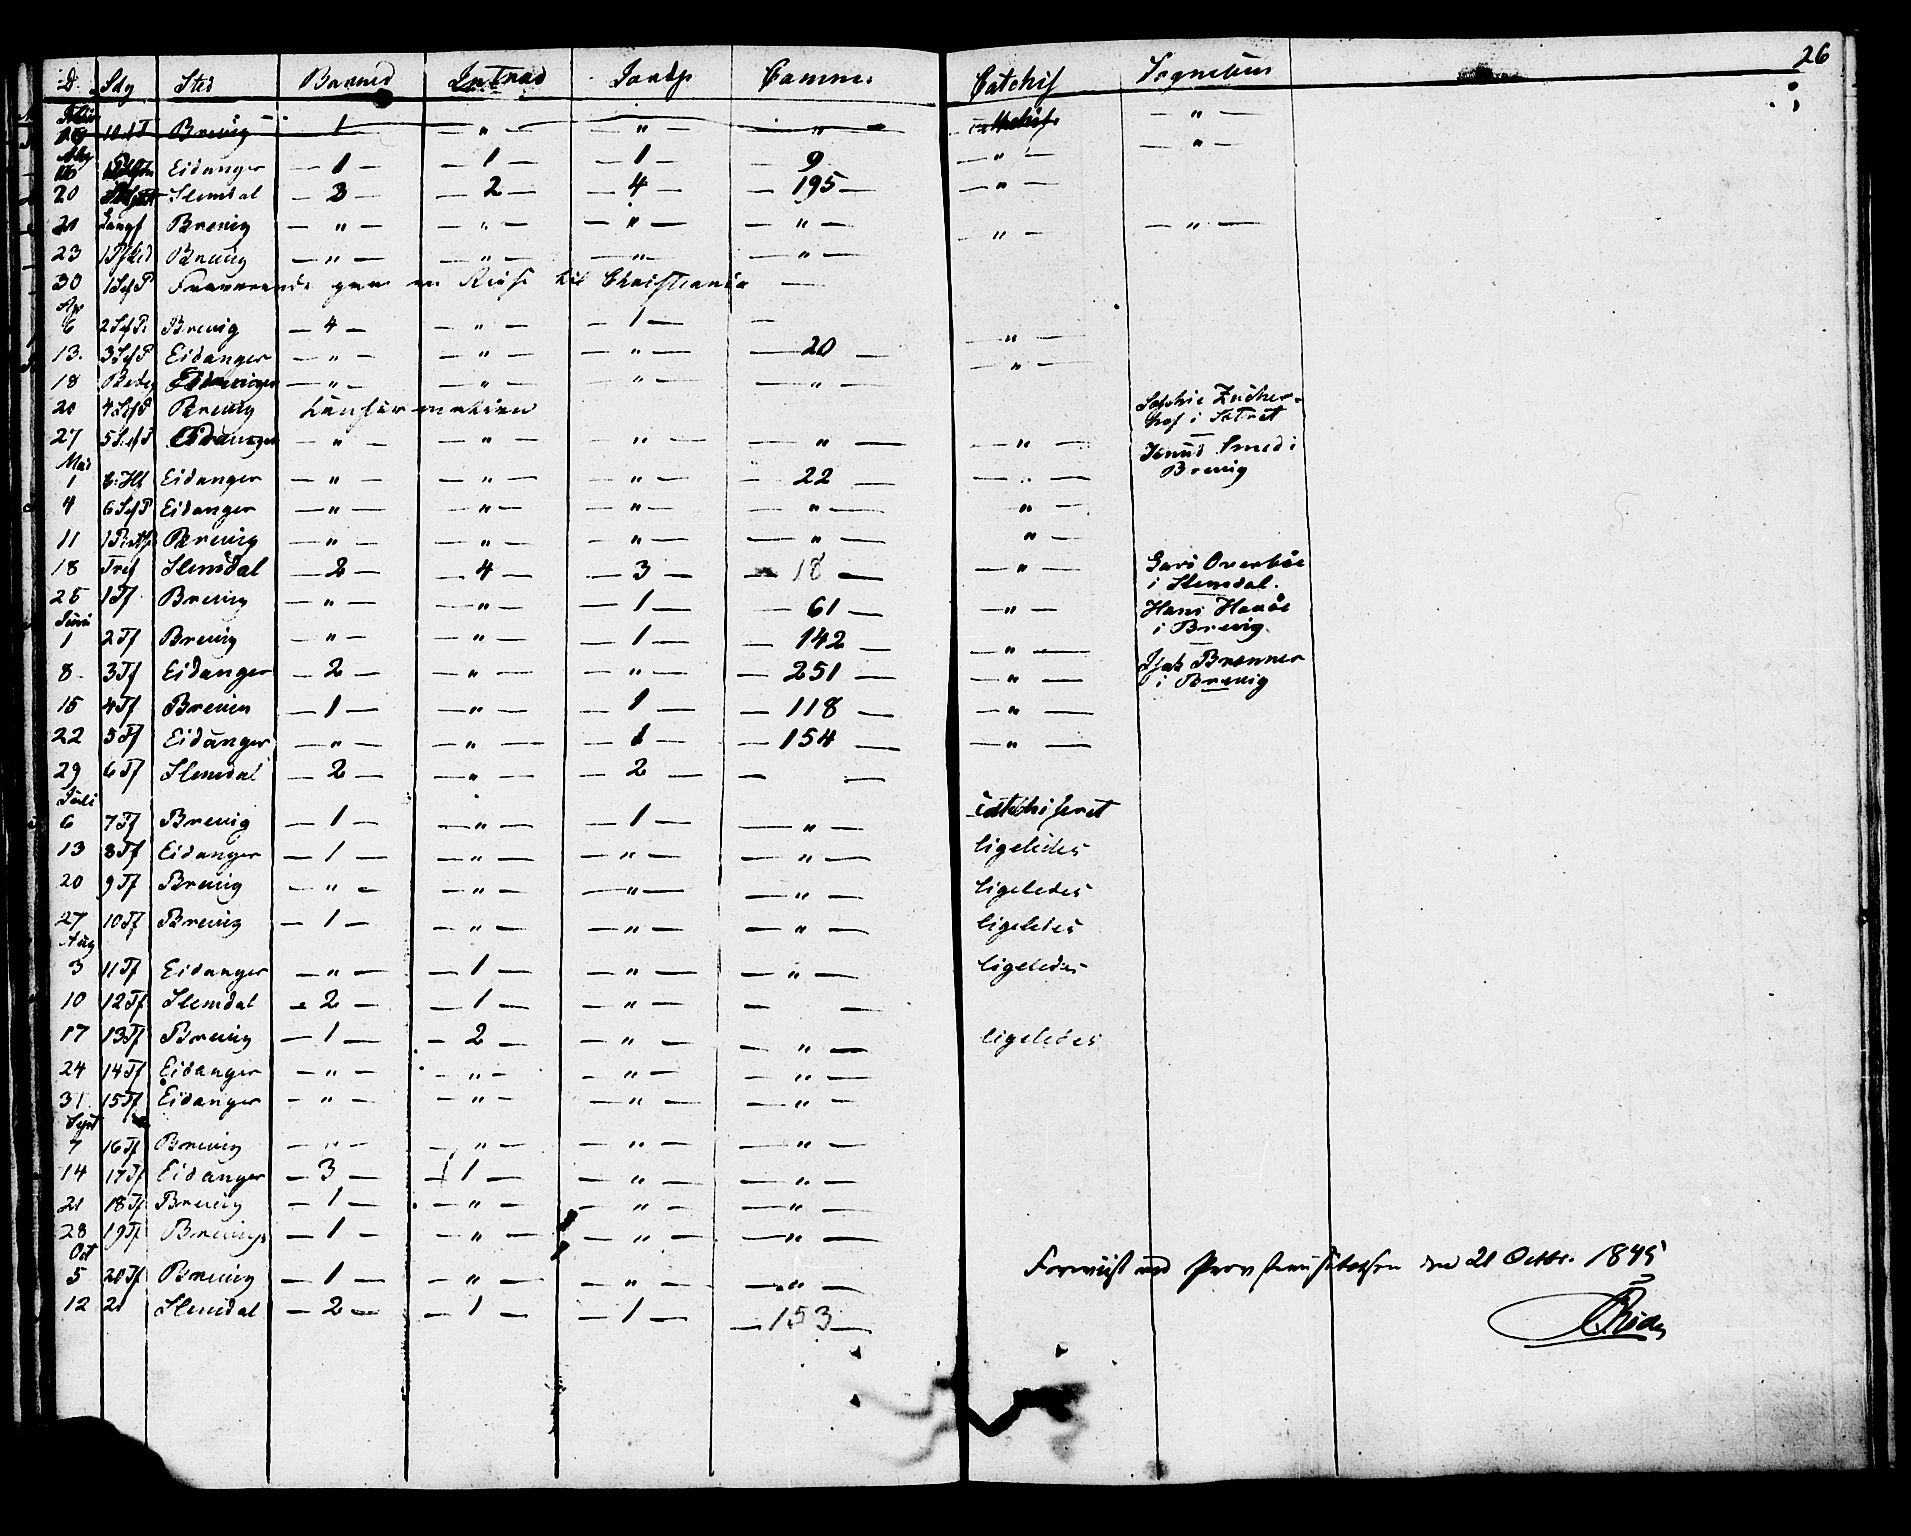 26
D. Sdg Sted Barned Introd Jordp Commu: Catchis Sognebud
Brevig 1 " " " "
Eidanger 1 1 1 9 " "
20 Slemdal 3 2 4 195 "
21 Langf Brevig " " " " " "
23 Brevig " " " "
30 Fraværende paa en Reise til Christiania
Ap
6 Brevig 4 " 1 "
13. Eidanger " " " 20 "
18 Eidanger " " " "
20 Brevig Confirmation Sophie
i
27 Eidanger " " " " " Knud Smed i
Mai Brevig
1 Eidanger " " " 22 "
4 Eidanger " " " " "
11 Brevig " " " " "
18 Tref Slemdal 2 4 3 18 " Overbøe
i Slemdal.
25 1 Tf Brevig " " 1 61 " Hans
Juni i Brevig.
1 2 Tf Brevig " " 1 142 "
8 3 Tf Eidanger 2 " " 251 "
i Brevig
15 4 Tf Brevig 1 " 1 118 "
22 5 Tf Eidanger " " 1 154 "
29 6 Tf Slemdal 2 " 2
Juli
6 7 Tf Brevig 1 " 1 " catechiseret
13 8 Tf Eidanger 1 " " " ligeledes
20 9 Tf Brevig " " " " ligeledes
27 10 Tf Brevig 1 " " " ligeledes
Aug
3 11 Tf Eidanger " 1 " " ligeledes
10 12 Tf Slemdal 2 1 "
17 13 Tf Brevig 1 2 " " ligeledes
24 14 Tf Eidanger " " " "
31 15 Tf Eidanger " " " "
Sept
7 16 Tf Brevig " " " "
14 17 Tf Eidanger 3 1 " "
21 18 Tf Brevig 1 " " "
28 19 Tf Brevig 1 " " "
Oct
5 20 Tf Brevig 1 " " "
12 21 Slemdal 2 1 1 153
Foreviist ved Provstevisitatsen den 21 Octbr. 1845